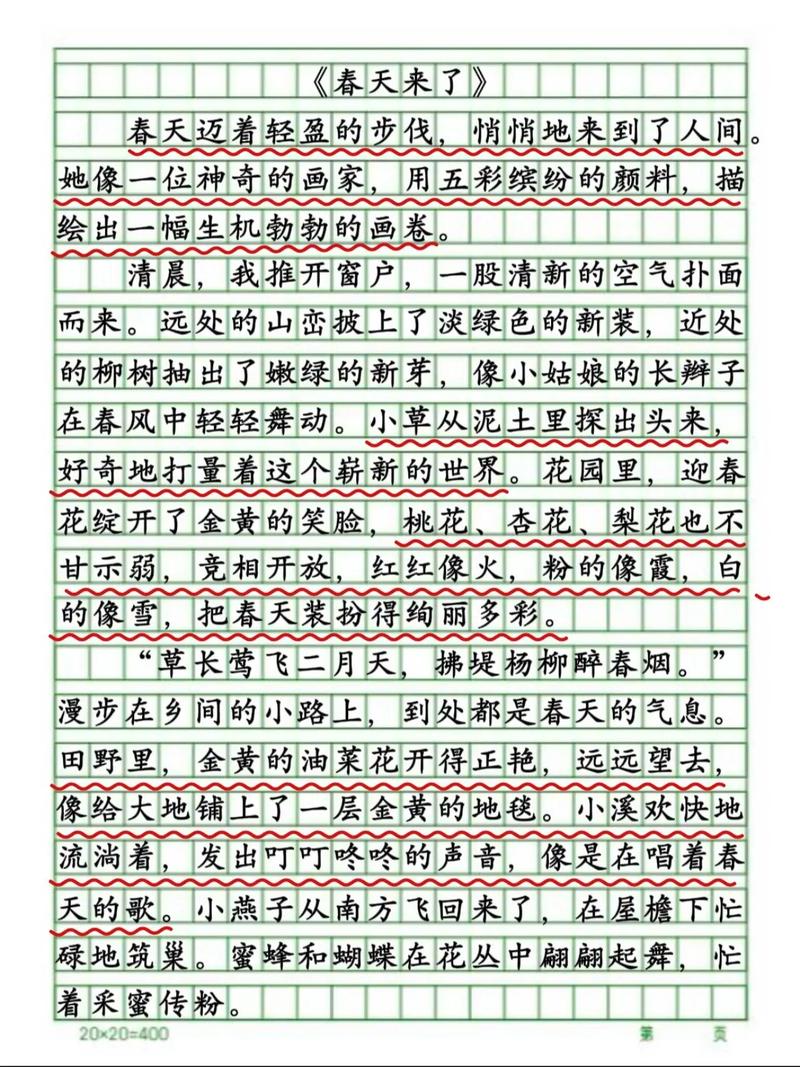 《春天来了》
春天迈着轻盈的步伐，悄悄地来到了人间。
她像一位神奇的画家，用五彩缤纷的颜料，描
绘出一幅生机勃勃的画卷。
清晨，我推开窗户，一股清新的空气扑面
而来。远处的山峦披上了淡绿色的新装，近处
的柳树抽出了嫩绿的新芽，像小姑娘的长辫子
在春风中轻轻舞动。小草从泥土里探出头来，
好奇地打量着这个崭新的世界。花园里，迎春
花绽开了金黄的笑脸，桃花、杏花、梨花也不
甘示弱，竞相开放，红红像火，粉的像霞，白
的像雪，把春天装扮得绚丽多彩。
“草长莺飞二月天，拂堤杨柳醉春烟。”
漫步在乡间的小路上，到处都是春天的气息。
田野里，金黄的油菜花开得正艳，远远望去，
像给大地铺上了一层金黄的地毯。小溪欢快地
流淌着，发出叮叮咚咚的声音，像是在唱着春
天的歌。小燕子从南方飞回来了，在屋檐下忙
碌地筑巢。蜜蜂和蝴蝶在花丛中翩翩起舞，忙
着采蜜传粉。
20×20=400 第 页